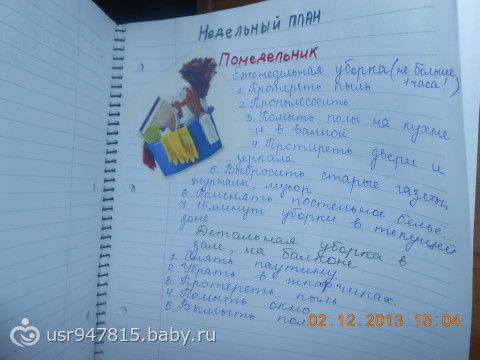 Недельный план
Понедельник
Еженедельная уборка (не больше
1 часа!)
1. Протереть пыль
2 Пропылесосить
3. Помыть полы на кухне
и в ванной
4. Протиреть двери и
зеркала
5. Выбросить старые газеты,
журналы, мусор
6. Поменять постельное бельё
7. 15 минут уборки в текущей
зоне
Детальная уборка в
зале, на балконе
1. Снять паутину
2 Убрать в шкафчиках.
3. Протереть пыль
4 Помыть окно
5. Вымыть пол
02.12.2013 15:04
usr947815.baby.ru